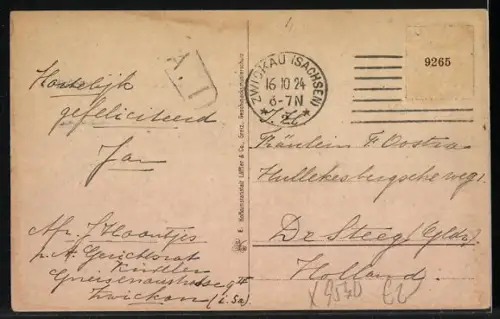 A.T
Hartelijk
gefeliciteerd
Jan
Afz. J Hoontjes
p. A. Gerichtsrat
Kindler
Gneisenaustrasse 9II
Zwickau (i. Sa)
ZWICKAU (SACHSEN)
16.10.24
6-7N
9265
Fräulein F Oostra
Hullekesbergsche weg 1
De Steeg (Gldr)
Holland.